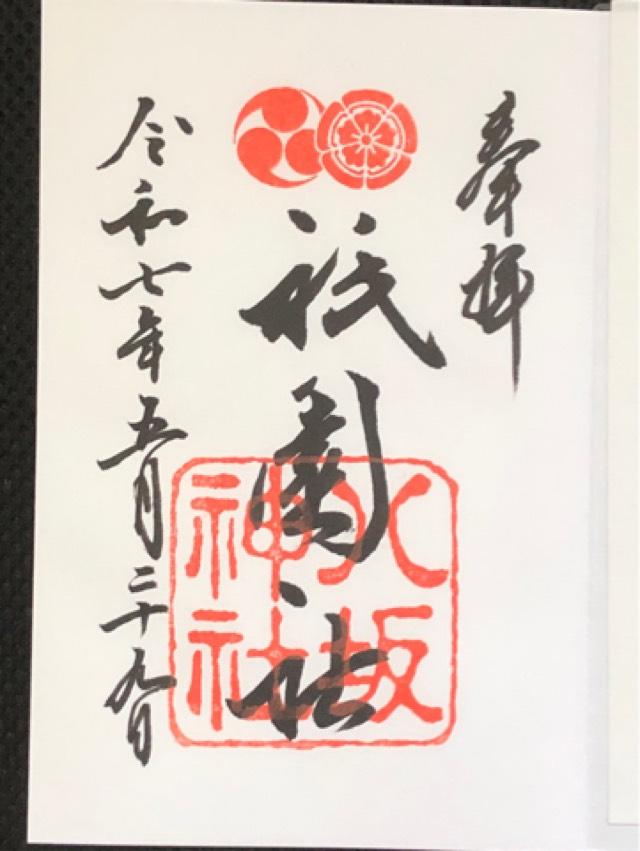 奉拝
祇園社
八坂
神社
令和七年五月二十九日